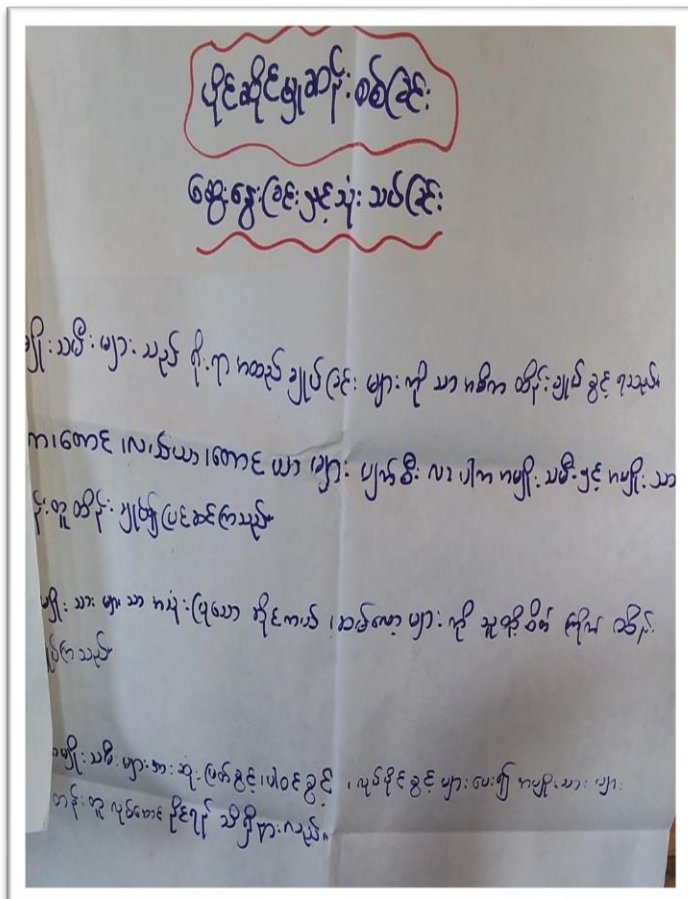 ပိုင်ဆိုင်မှုဆန်းစစ်ခြင်း
ဆွေးနွေးခြင်းနှင့်သုံးသပ်ခြင်း
မျိုးသမီးများသည် ရိုးရာအထည်ချုပ်ခြင်းများကိုသာ အဓိကထိန်းချုပ်ခွင့်ရသည်။
တောင်၊လယ်ယာ၊တောင်ယာများ ပျက်စီးလာပါက အမျိုးသမီးနှင့် အမျိုးသာ
န်းတူထိန်းချုပ်၍ပြင်ဆင်ကြသည်။
မျိုးသားများသာ အသုံးပြုသော များကို သူတို့ ထိန်း
ပ်ကြသည်
အမျိုးသမီးများအား ဆုံးဖြတ်ခွင့်၊ပါဝင်ခွင့်၊လုပ်ပိုင်ခွင့်များပေး၍ အမျိုးသားများ
တန်းတူလုပ်ဆောင်နိုင်ရန် သိရှိနားလည်။